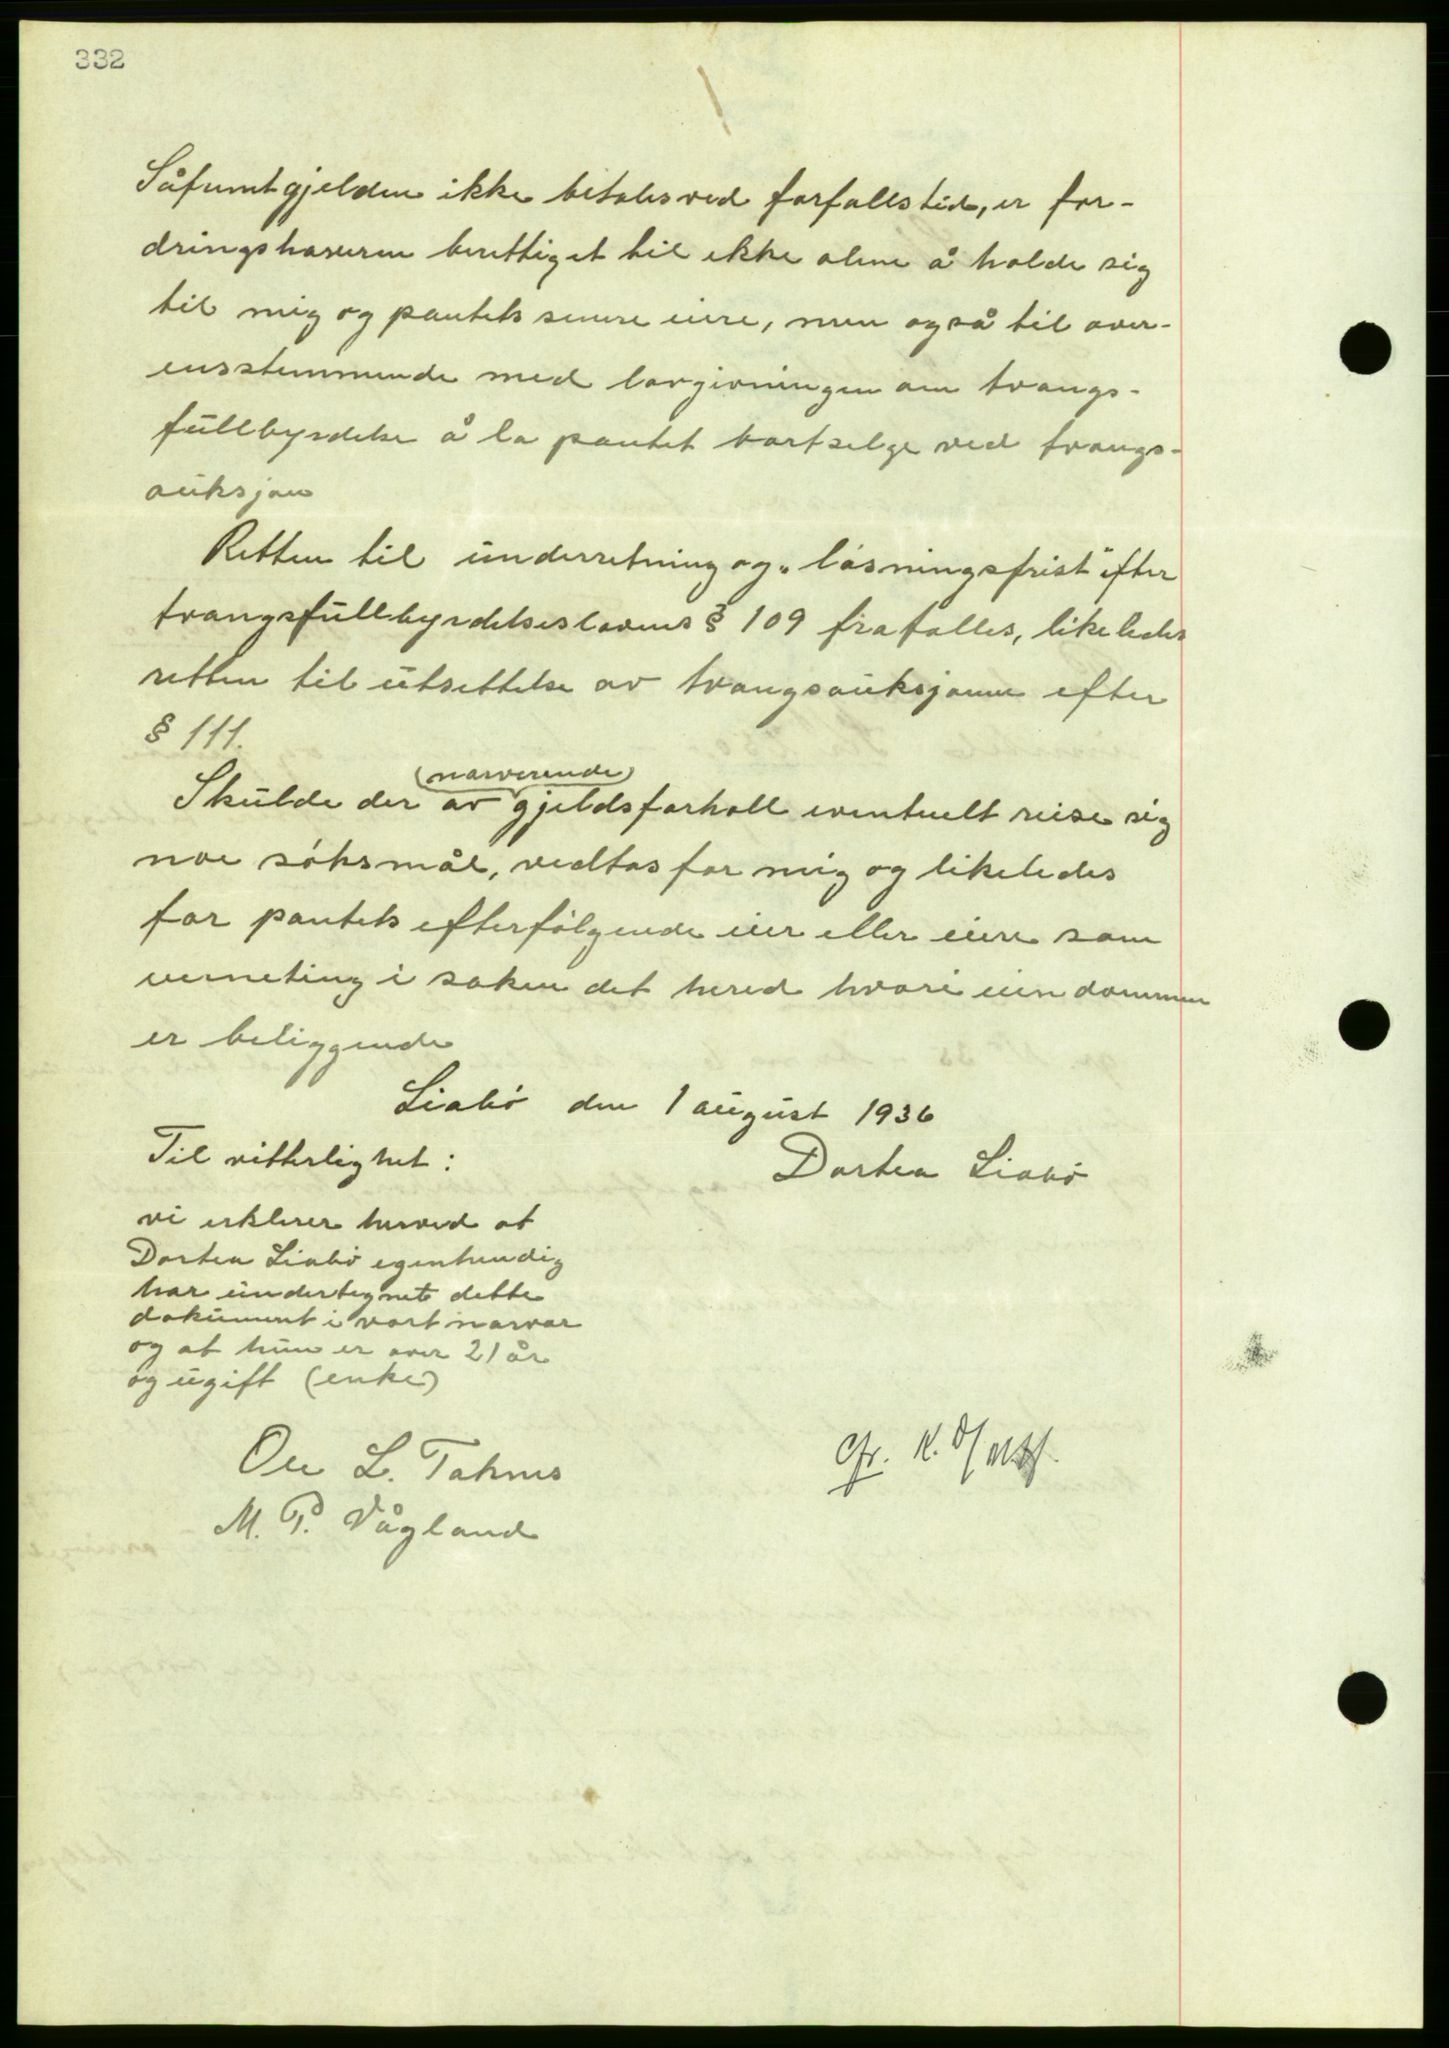 332
Såfrumt gjelden ikke betales ved forfallstid, er for-
dringshaveren berettiget til ikke alene å holde sig
til mig og pantets senere eiere, men også til over-
ensstemmende med lovgivningen om tvangs-
fullbyrdelse å la pantet bortselge ved tvangs-
auksjon
Retten til underretning og "løsningsfrist" efter
tvangsfullbyrdelseslovens § 109 frafalles, likeledes
retten til utsettelse av tvangsauksjonen efter
§ 111.
(nærverende)
Skulde der av gjeldsforholl eventuelt reise sig
noe søksmål, vedtas for mig og likeledes
for pantets efterfølgende eier eller eiere som
verneting i saken det hered hvori eiendommen
er beliggende
Liabø den 1 august 1936
Til vitterlighet:
Dortea Liabø
vi erklerer herved at
Dortea Liabø egenhendig
har undertegnet dette
dokument i vort nærvær
og at hun er over 21 år
og ugift (enke)
L. Taknes
M. P. Vågland
Gr. K.